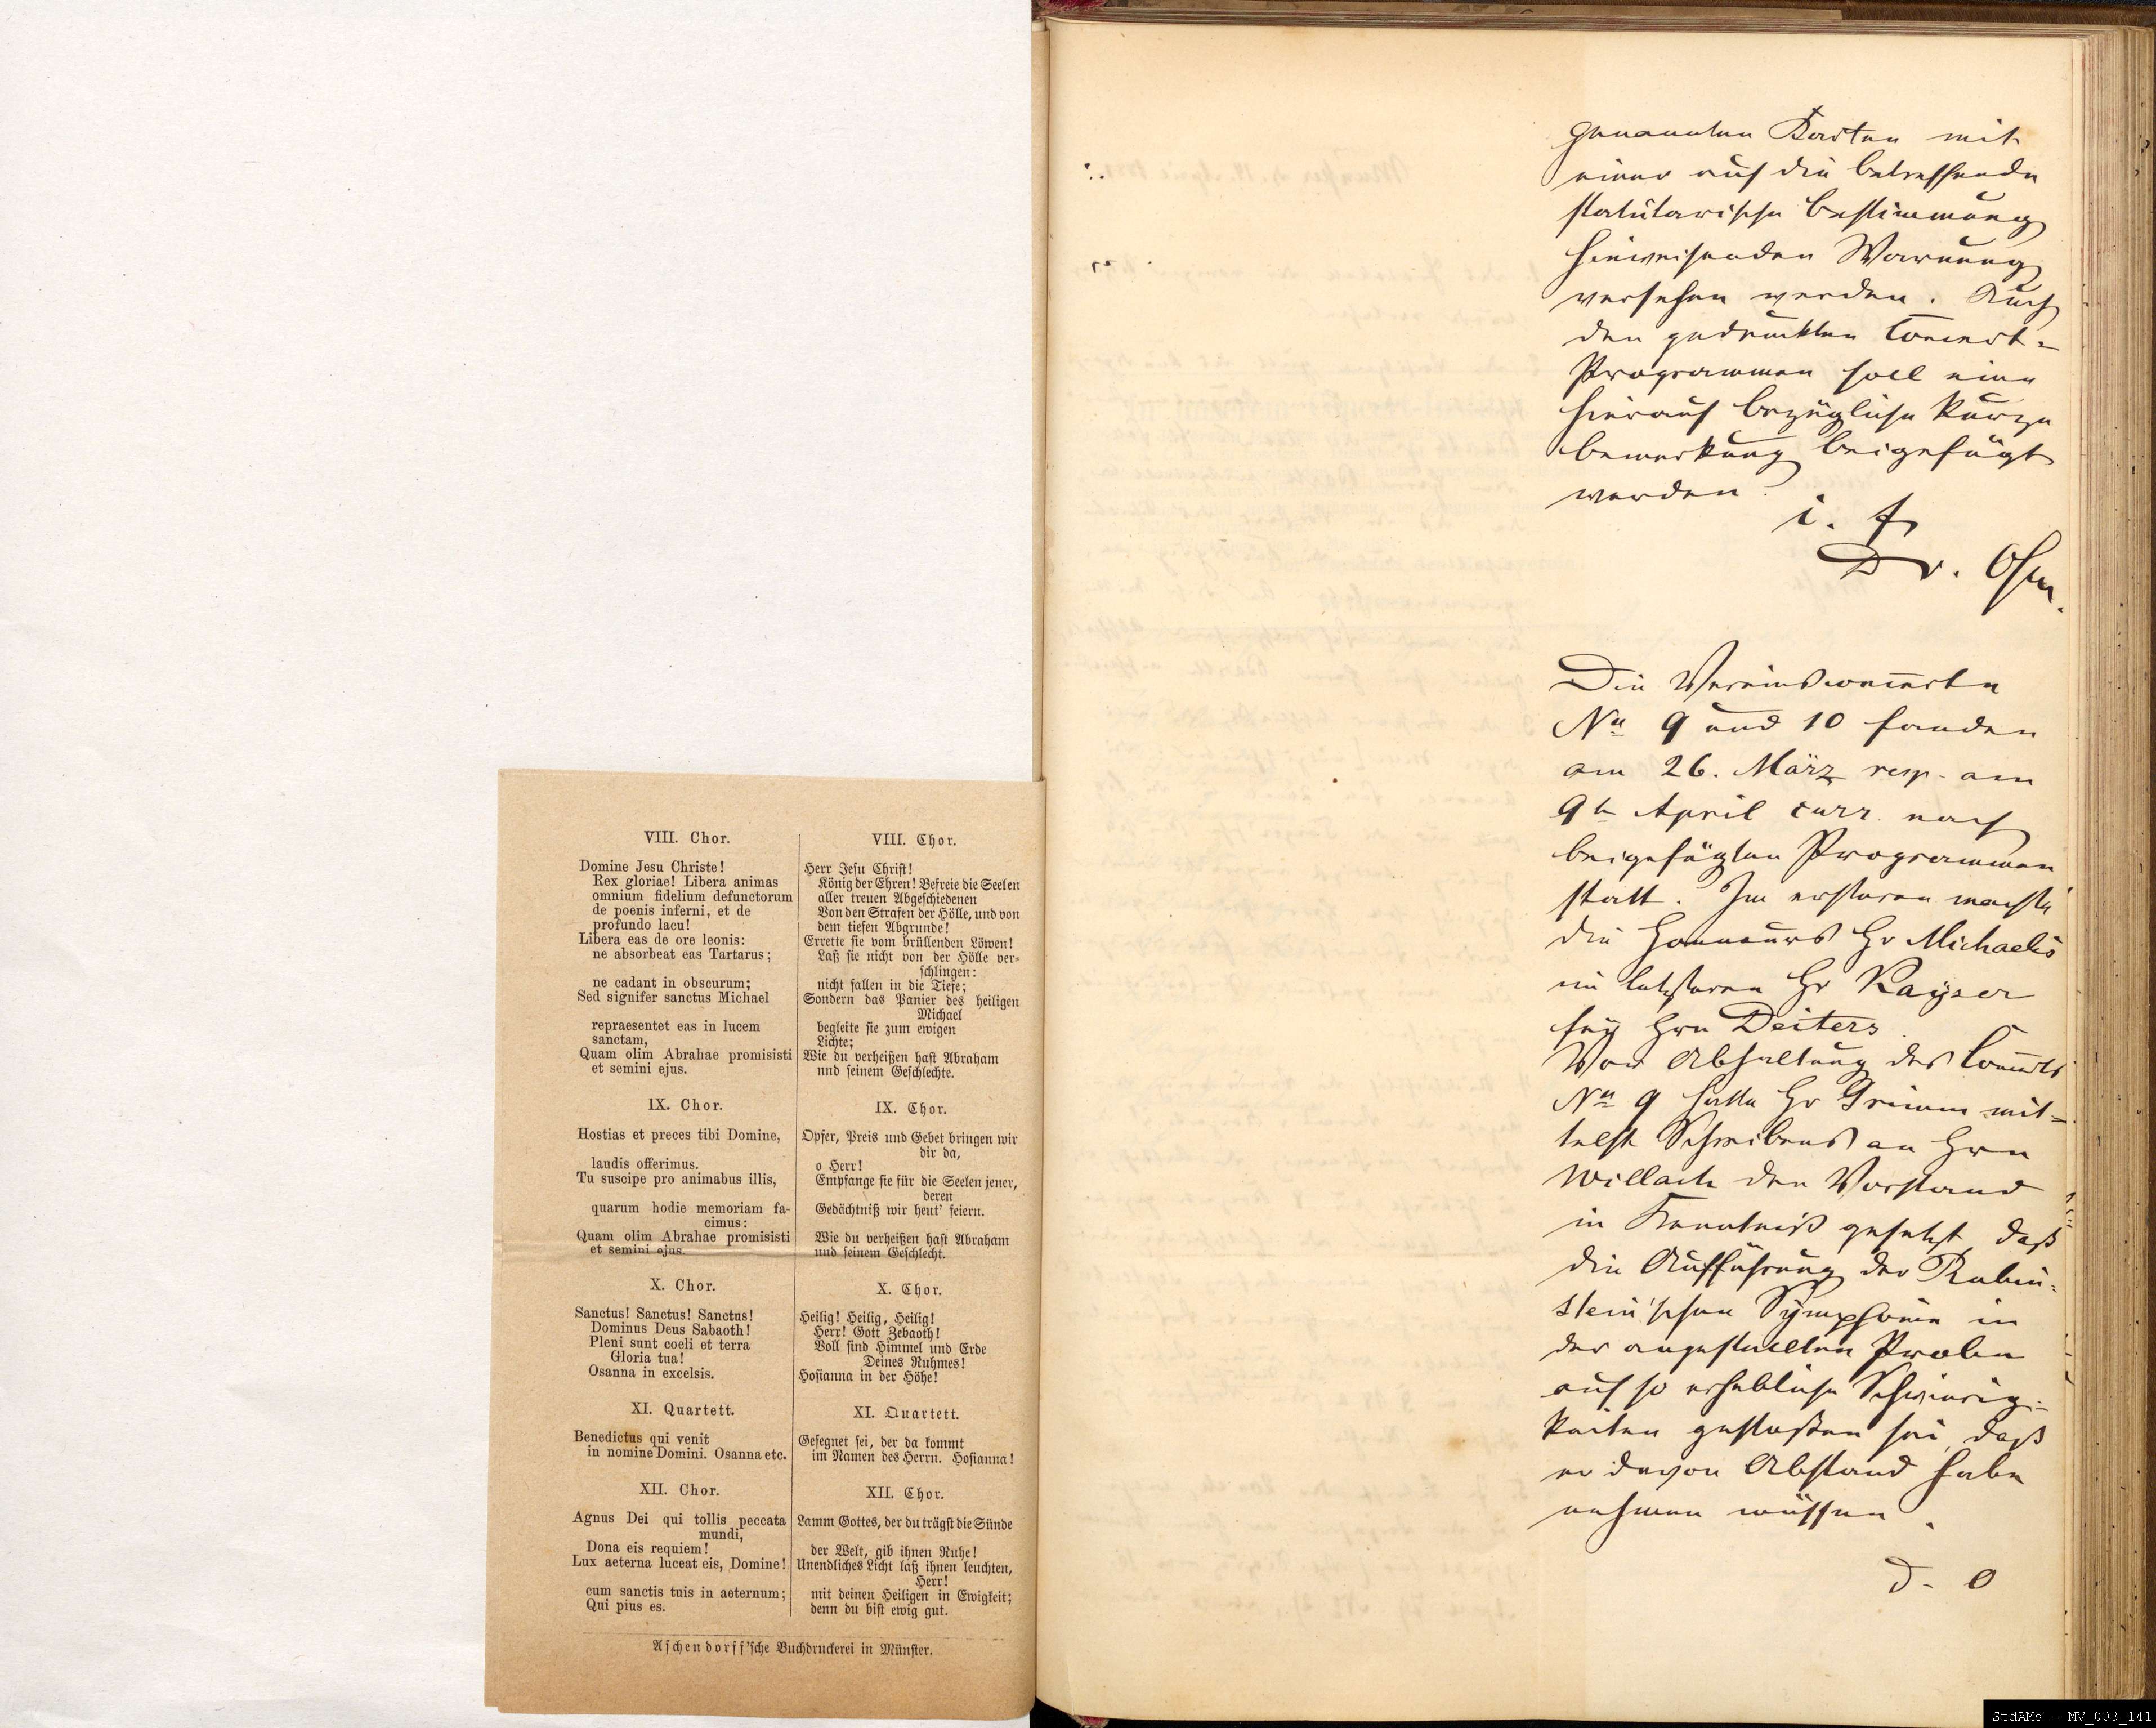 VIII. Chor.
Domine Jesu Christe!
Rex gloriae! Libera animas
omnium fidelium defunctorum
de poenis inferni, et de
profundo lacu!
Libera eas de ore leonis:
ne absorbeat eas Tartarus;
ne cadant in obscurum;
Sed signifer sanctus Michael
repraesentet eas in lucem
sanctam,
Quam olim Abrahae promisisti
et semini ejus.
IX. Chor.
Hostias et preces tibi Domine,
laudis offerimus.
Tu suscipe pro animabus illis,
quarum hodie memoriam fa-
cimus:
Quam olim Abrahae promisisti
et semini ejus.
X. Chor.
Sanctus! Sanctus! Sanctus!
Dominus Deus Sabaoth!
Pleni sunt coeli et terra
Gloria tua!
Osanna in excelsis.
XI. Quartett.
Benedictus qui venit
in nomine Domini. Osanna etc.
XII. Chor.
Agnus Dei qui tollis peccata
mundi,
Dona eis requiem!
Lux aeterna luceat eis, Domine!
cum sanctis tuis in aeternum;
Qui pius es.
VIII. Chor.
Herr Jesu Christ!
König der Ehren! Befreie die Seelen
aller treuen Abgeschiedenen
Von den Strafen der Hölle, und von
dem tiefen Abgrunde!
Errette sie vom brüllenden Löwen!
Laß sie nicht von der Hölle ver-
schlingen:
nicht fallen in die Tiefe;
Sondern das Panier des heiligen
Michael
begleite sie zum ewigen
Lichte;
Wie du verheißen hast Abraham
und seinem Geschlechte.
IX. Chor.
Opfer, Preis und Gebet bringen wir
dir da,
o Herr!
Empfange sie für die Seelen jener,
deren
Gedächtniß wir heut' feiern.
Wie du verheißen hast Abraham
und seinem Geschlecht.
X. Chor.
Heilig! Heilig, Heilig!
Herr! Gott Zebaoth!
Voll sind Himmel und Erde
Deines Ruhmes!
Hosianna in der Höhe!
XI. Quartett.
Gesegnet sei, der da kommt
im Namen des Herrn. Hosianna!
XII. Chor.
Lamm Gottes, der du trägst die Sünde
der Welt, gib ihnen Ruhe!
Unendliches Licht laß ihnen leuchten,
Herr!
mit deinen Heiligen in Ewigkeit;
denn du bist ewig gut.
Aschendorff'sche Buchdruckerei in Münster.
genannten Karten mit
einer auf die betreffende
statutarische Bestimmung
hinweisenden Warnung
versehen werden. Auch
den gedruckten Concert-
Programmen soll eine
hierauf bezügliche kurze
Bemerkung beigefügt
werden.
i. f.
Dr. Ohm.
Die Vereinsconcerte
No 9 und 10 fanden
am 26. März resp. am
9t April curr. nach
beigefügten Programmen
statt. Im ersteren machte
die Honneurs Hr Michaelis
im letzteren Hr Kayser
für Hrn Deiters.
Vor Abhaltung des Concerts
No 9 hatte Hr Grimm mit-
telst Schreibens an Hrn
Willach den Vorstand
in Kenntniß gesetzt, daß
die Aufführung der Rubin-
stein'schen Symphonie in
der angestellten Probe
auf so erhebliche Schwierig-
keiten gestoßen sei, daß
er davon Abstand habe
nehmen müssen.
d. O
StdAMs - MV_003_141